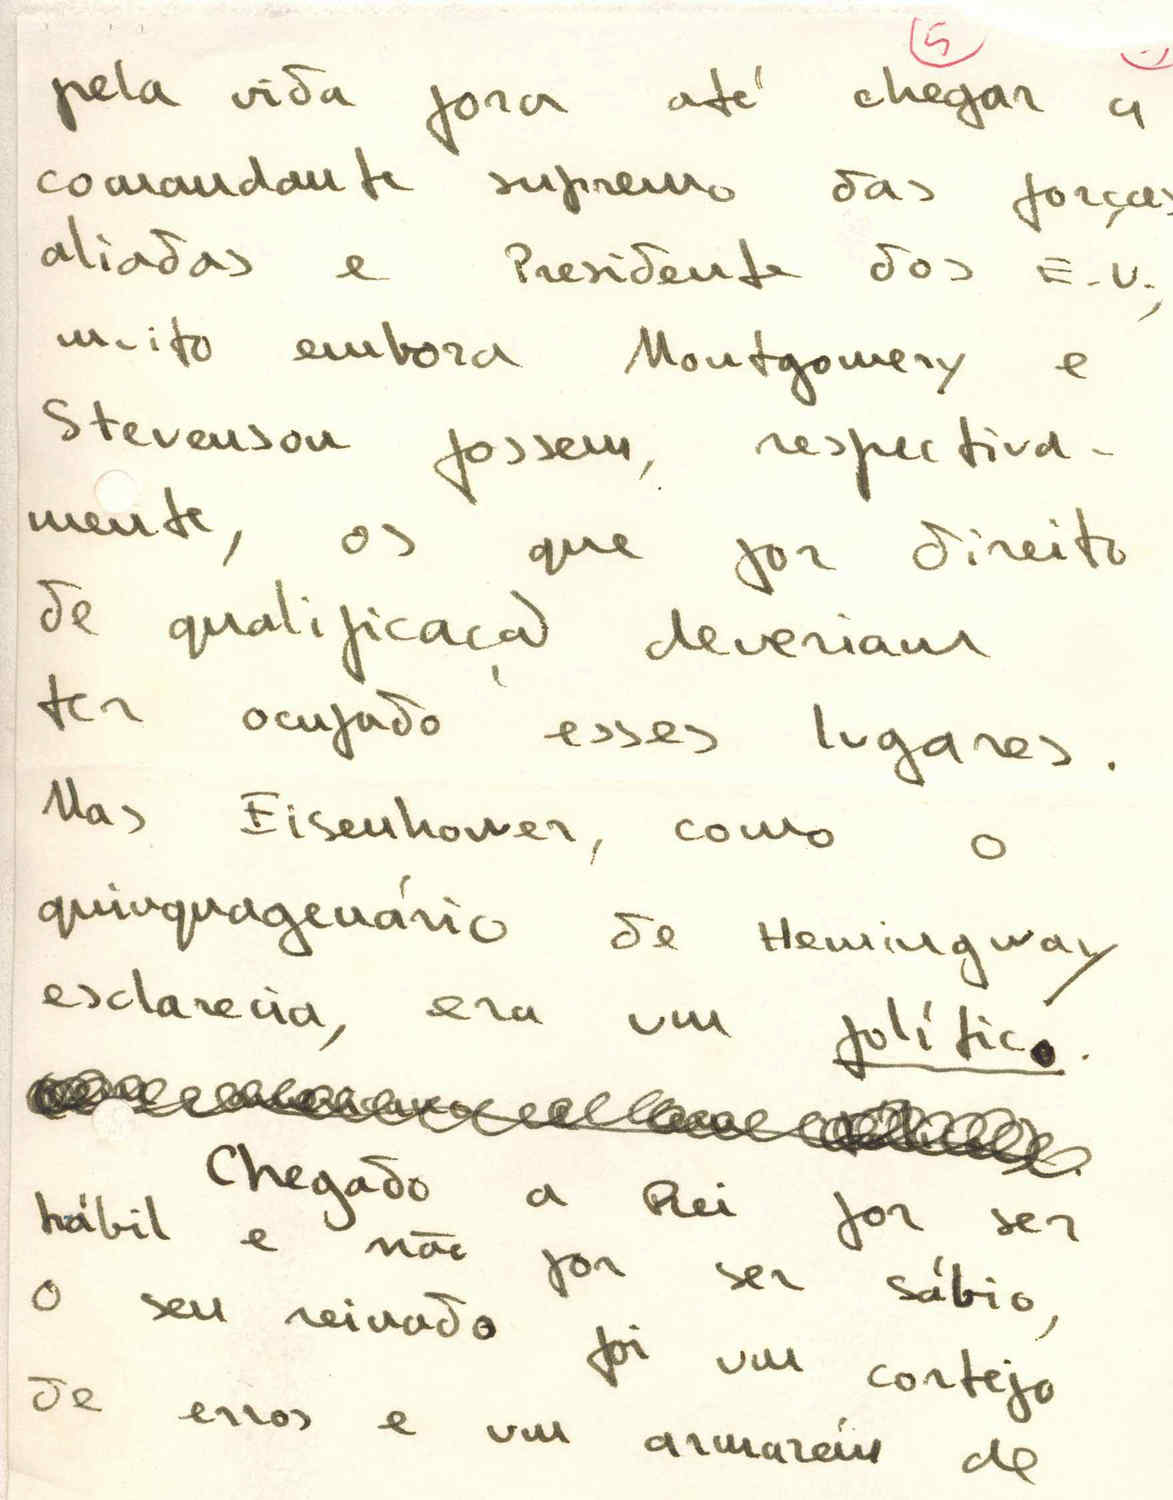 5
pela vida fora até chegar a
comandante supremo das forças
aliadas e Presidente dos E.U.,
muito embora Montgomery e
Stevenson fossem, respectiva-
mente, os que por direito
de qualificação deveriam
ter ocupado esses lugares.
Mas Eisenhower, como o
quinquagenário de Hemingway
esclarecia, era um político.
Chegado a Rei por ser
hábil e não por ser sábio,
o seu reinado foi um cortejo
de erros e um armazém de